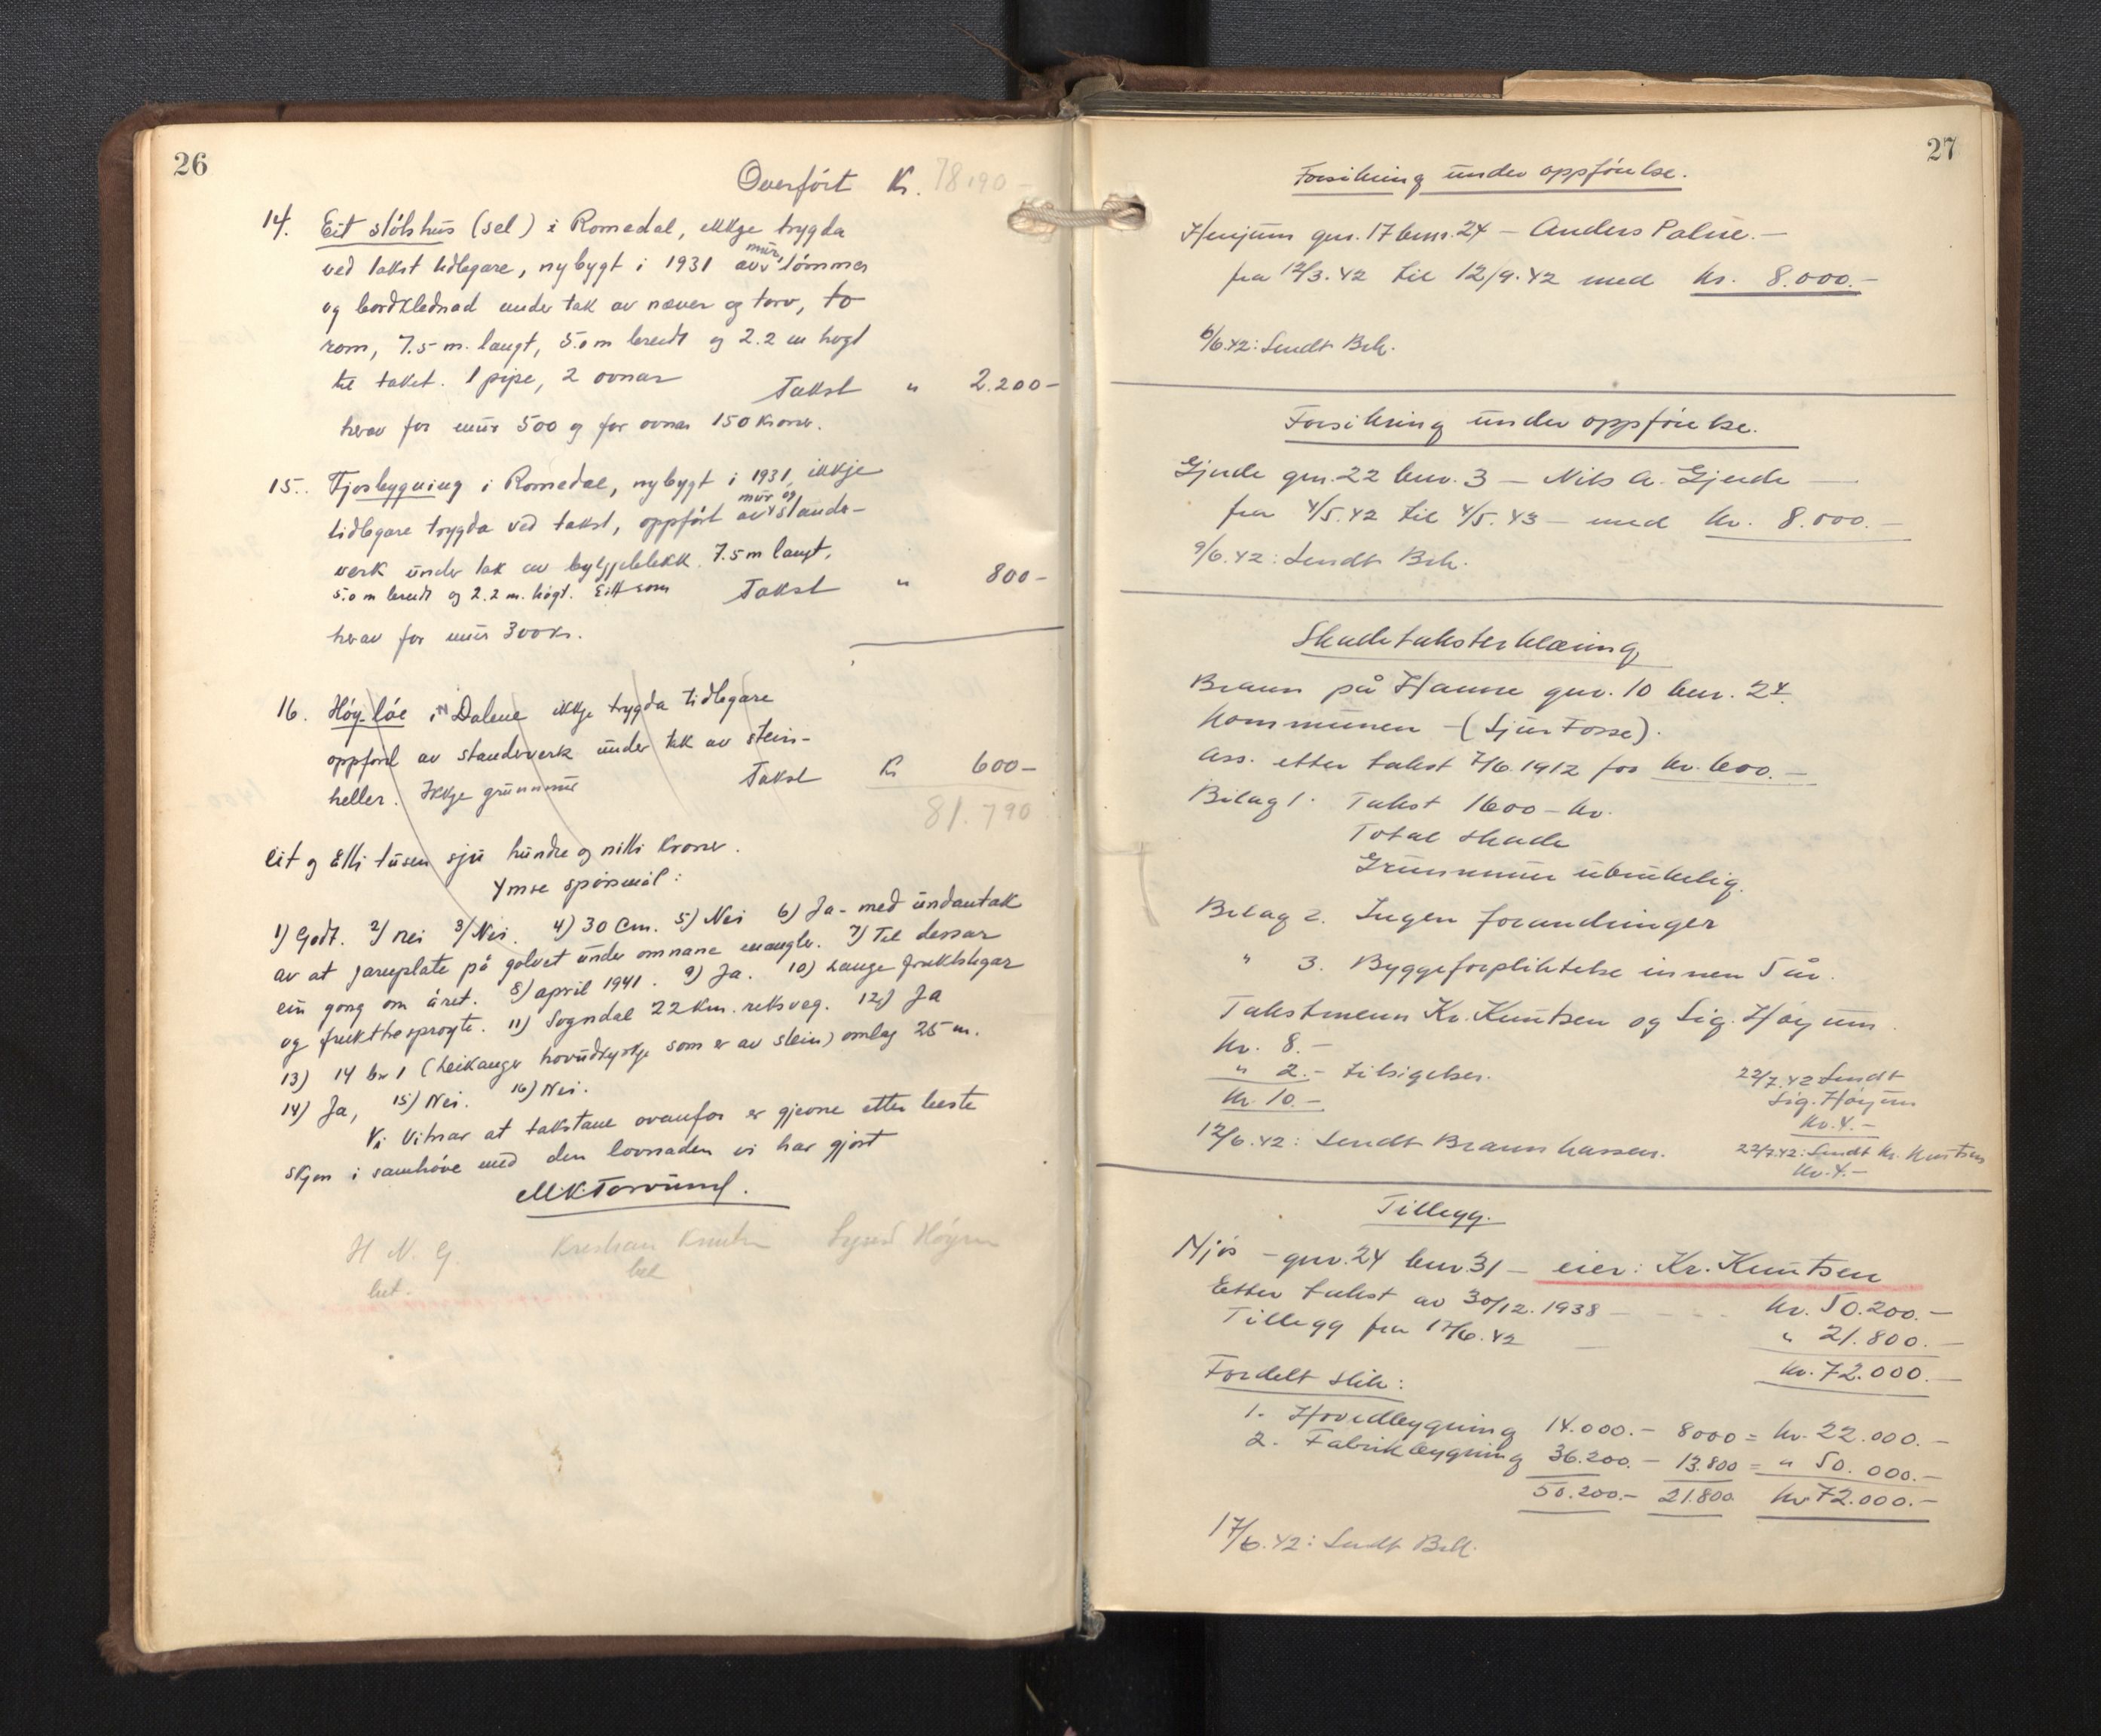 26
Overfört Kr. 78.190-
14. Eit stölshus (sel) i Romedal, ikkje trygda
ved takst tidlegare, nybygt i 1931 av mur, tömmer
og bordklednad under tak av never og torv, to
rom, 7.5 m. langt, 5.0 m breidt og 2.2 m høgt
til taket. 1 pipe, 2 ovnar Takst " 2.200-
herav for mur 500 og for ovnar 150 kroner.
15. Fjosbygning i Romedal, nybygt i 1931, ikkje
tidlegare trygda ved takst, oppfört av mur og stander-
verk under tak av bylgjeblekk. 7.5 m langt,
5.0 m breidt og 2.2 m. högt. Eitt rom Takst " 800-
herav for mur 300 kr.
16. Höy-löe i Dalene ikkje trygda tidlegare
oppförd av standerverk under tak av stein-
heller. Ikkje grunnmur Takst Kr 600-
81.790
eit og åtti tusen sju hundre og nitti kroner.
Ymse spörsmål:
1) Godt. 2) Nei 3) Nei. 4) 30 Cm. 5) Nei 6) Ja - med undantak
av at jarnplate på golvet under omnane manglar. 7) Til dessar
ein gong om året. 8) april 1941. 9) Ja. 10) Lange frukthagar
og frukttresprøyte. 11) Sogndal 22 km. riksveg. 12) Ja
13) 14 br 1 (Leikanger hovudkyrkje som er av stein) omlag 25 m.
14) Ja, 15) Nei. 16) Nei.
Vi vitnar at takstane ovanfor er gjevne etter beste
skjön i samhöve med den lovnaden vi har gjort
M.K. Torvund.
H N. G. Kristian Knutsen Sigurd Höyum
bet. bet
27
Forsikring under oppförelse.
Henjum gnr. 17 bnr. 24 - Anders Palue. -
fra 12/3.42 til 12/9.42 med kr. 8.000.-
6/6.42: Sendt Brk.
Forsikring under oppförelse.
Gjerde gnr. 22 bnr. 3 - Nils A. Gjerde -
fra 4/5.42 til 4/5.43 - med kr. 8.000.-
9/6.42: Sendt Brk.
Skadetaksterklæring
Brann på Hamre gnr. 10 bnr. 24.
Kommunen - (Sjur Fosse).
Ass. etter takst 7/6 1912 for kr. 600.-
Bilag 1. Takst 1600 - kr.
Total skade
Grunnmur ubrukelig.
Bilag 2. Ingen forandringer
" 3. Byggeforpliktelse innen 5 år.
Takstmenn Kr. Knutsen og Sig. Höyum.
kr. 8.-
" 2.- tilsigelser.
kr. 10.-
22/7.42 Sendt
Sig. Höyum
kr. 4.-
12/6.42: Sendt Brannkassen.
22/7.42: Sendt Kr. Knutsen
kr. 4.-
Tillegg.
Njös - gnr. 24 bnr. 31 - eier: Kr. Knutsen
Etter takst av 30/12.1938 - - - kr. 50.200.-
Tillegg fra 17/6.42 - " 21.800.-
kr. 72.000.-
Fordelt slik:
1. Hovedbygning 14.000.- 8000 = kr. 22.000.-
2. Fabrikbygning 36.200.- 13.800 = " 50.000.-
50.200.- 21.800 kr 72.000.-
17/6.42: Sendt Brk.